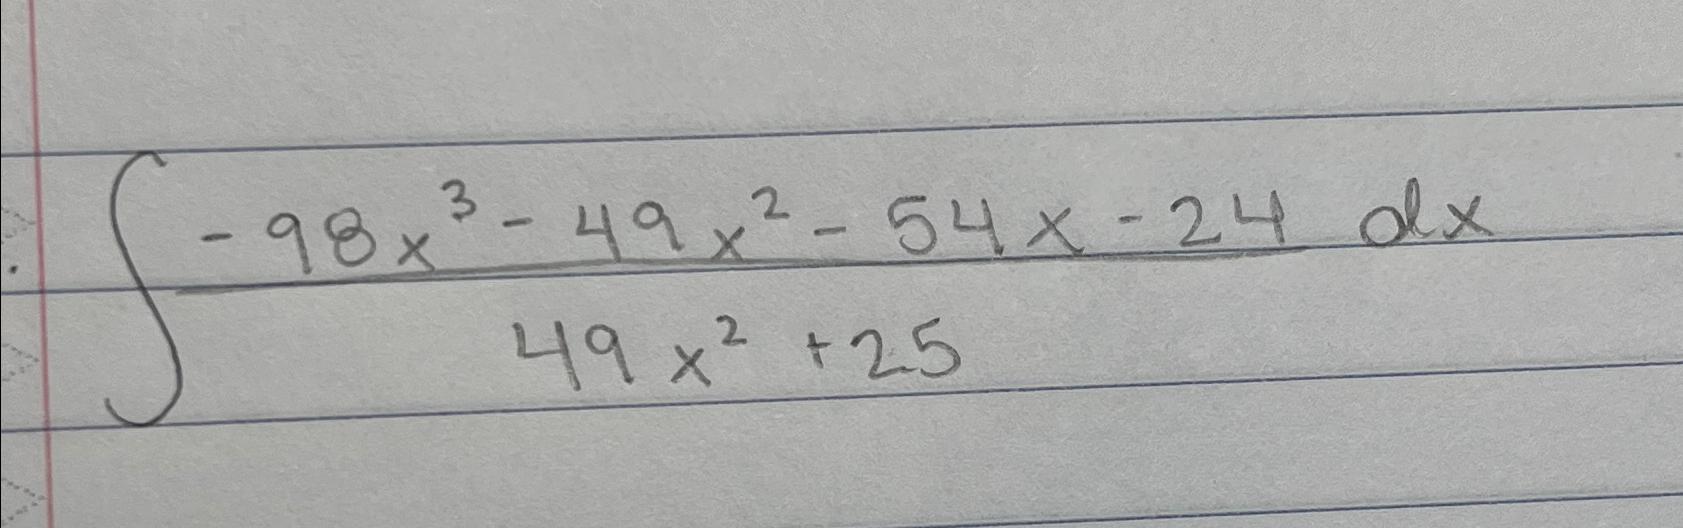 ∫ (-98x³ - 49x² - 54x - 24)/(49x² + 25) dx